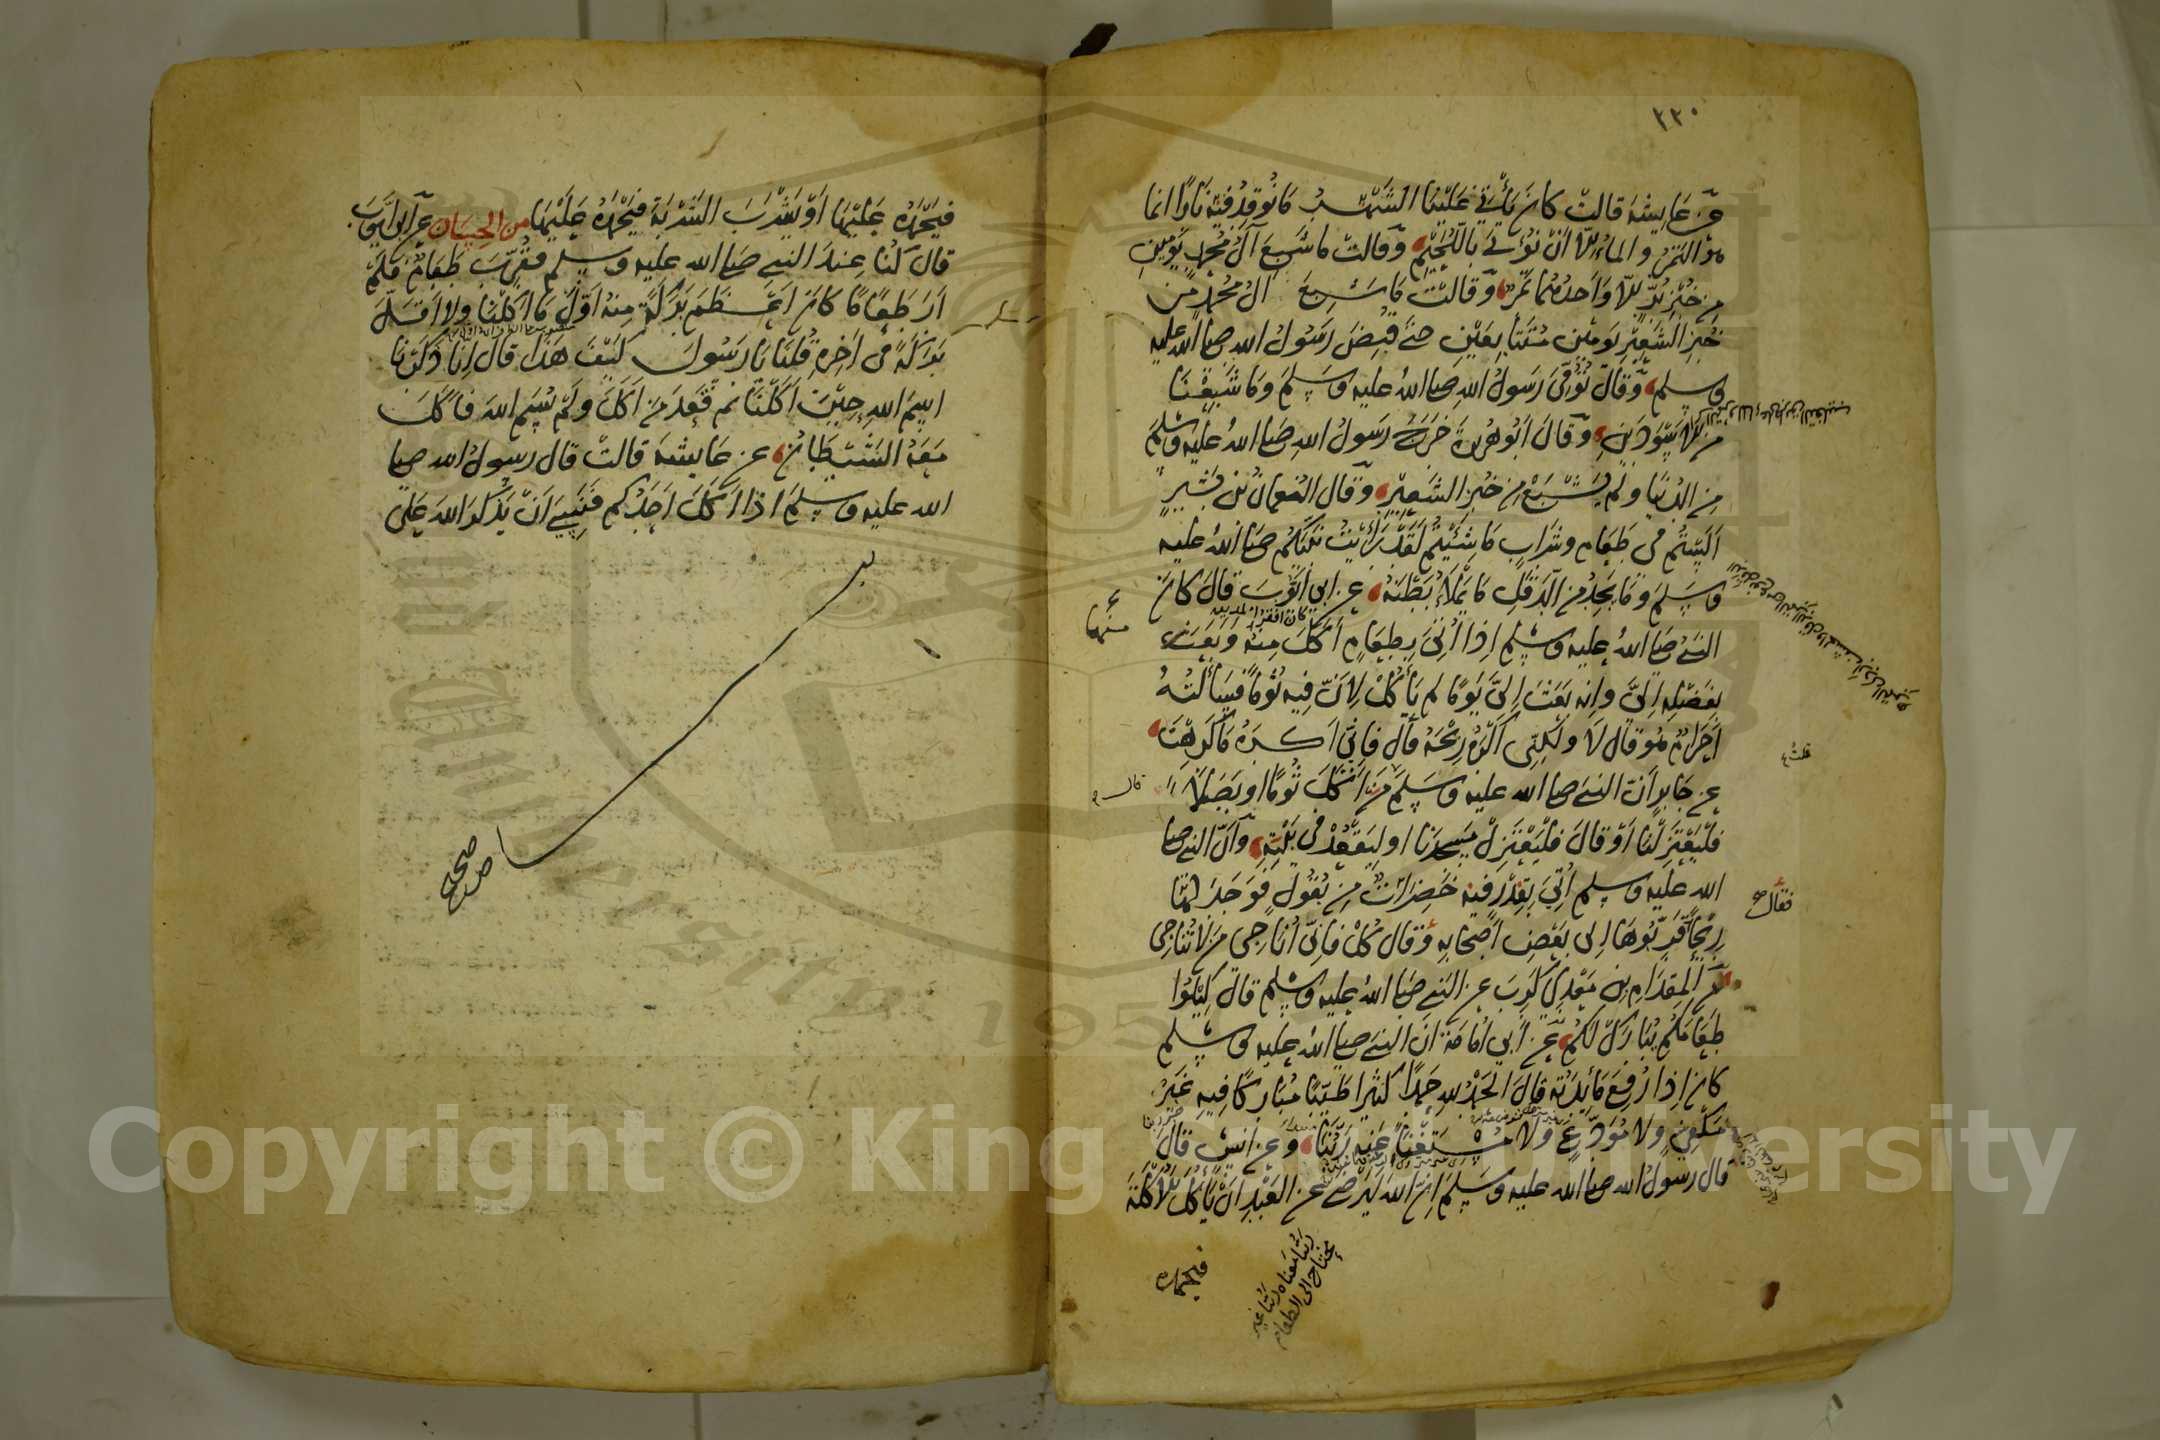 ٢٢٠
وعن عايشة قالت كان يأتي علينا الشهر ما نوقد فيه نارا انما
هو التمر والماء الا ان نؤتى باللحيم وقالت ما شبع آل محمد يومين
من خبز بر الا واحدهما تمر وقالت ما شبع آل محمد من
خبز الشعير يومين متتابعين حتى قبض رسول الله صلى الله عليه
وسلم وقال توفى رسول الله صلى الله عليه وسلم وما شبعنا
من الاسودين وقال ابو هريرة خرج رسول الله صلى الله عليه وسلم
من الدنيا ولم يشبع من خبز الشعير وقال النعمان بن بشير
الستم في طعام وشراب ما شئتم لقد رأيت نبيكم صلى الله عليه
وسلم وما يجد من الدقل ما يملأ بطنه عن ابي ايوب قال كان
النبي صلى الله عليه وسلم اذا اتى بطعام اكل منه وبعث
بفضله الي وانه بعث الي يوما لم يأكل لان فيه ثوما فسألته
احرام هو قال لا ولكني اكره ريحه قال فاني اكره ما كرهت
عن جابر ان النبي صلى الله عليه وسلم من اكل ثوما او بصلا
قال
فليعتزلنا او قال فليعتزل مسجدنا او ليقعد في بيته وان النبي صلى
الله عليه وسلم اتي بقدر فيه خضرات من بقول فوجد لها
فقال
ريحا قربوها الى بعض اصحابه وقال كل فاني اناجي من لا تناجي
عن المقدام بن معدي كرب عن النبي صلى الله عليه وسلم قال كيلوا
طعامكم يبارك لكم عن ابي امامة ان النبي صلى الله عليه وسلم
كان اذا رفع مائدته قال الحمد لله حمدا كثيرا طيبا مباركا فيه غير
مكفي ولا مودع ولا مستغنا عنه ربنا وعن انس قال
قال رسول الله صلى الله عليه وسلم ان الله ليرضى عن العبد ان يأكل الاكلة
ربنا معناه ربنا غير
محتاج الى الطعام
فيحمده
فيحمده عليها او يشرب الشربة فيحمده عليها من الحسان عن ابي ايوب
قال كنا عند النبي صلى الله عليه وسلم فقرب طعام فلم
ار طعاما كان اعظم بركة منه اول ما اكلنا ولا اقل
بركة في اخره قلنا يا رسول كيف هذا قال انا ذكرنا
اسم الله حين اكلنا ثم قعد من اكل ولم يسم الله فاكل
معه الشيطان عن عايشة قالت قال رسول الله صلى
الله عليه وسلم اذا اكل احدكم فنسي ان يذكر الله على
صح
Copyright © King Saud University